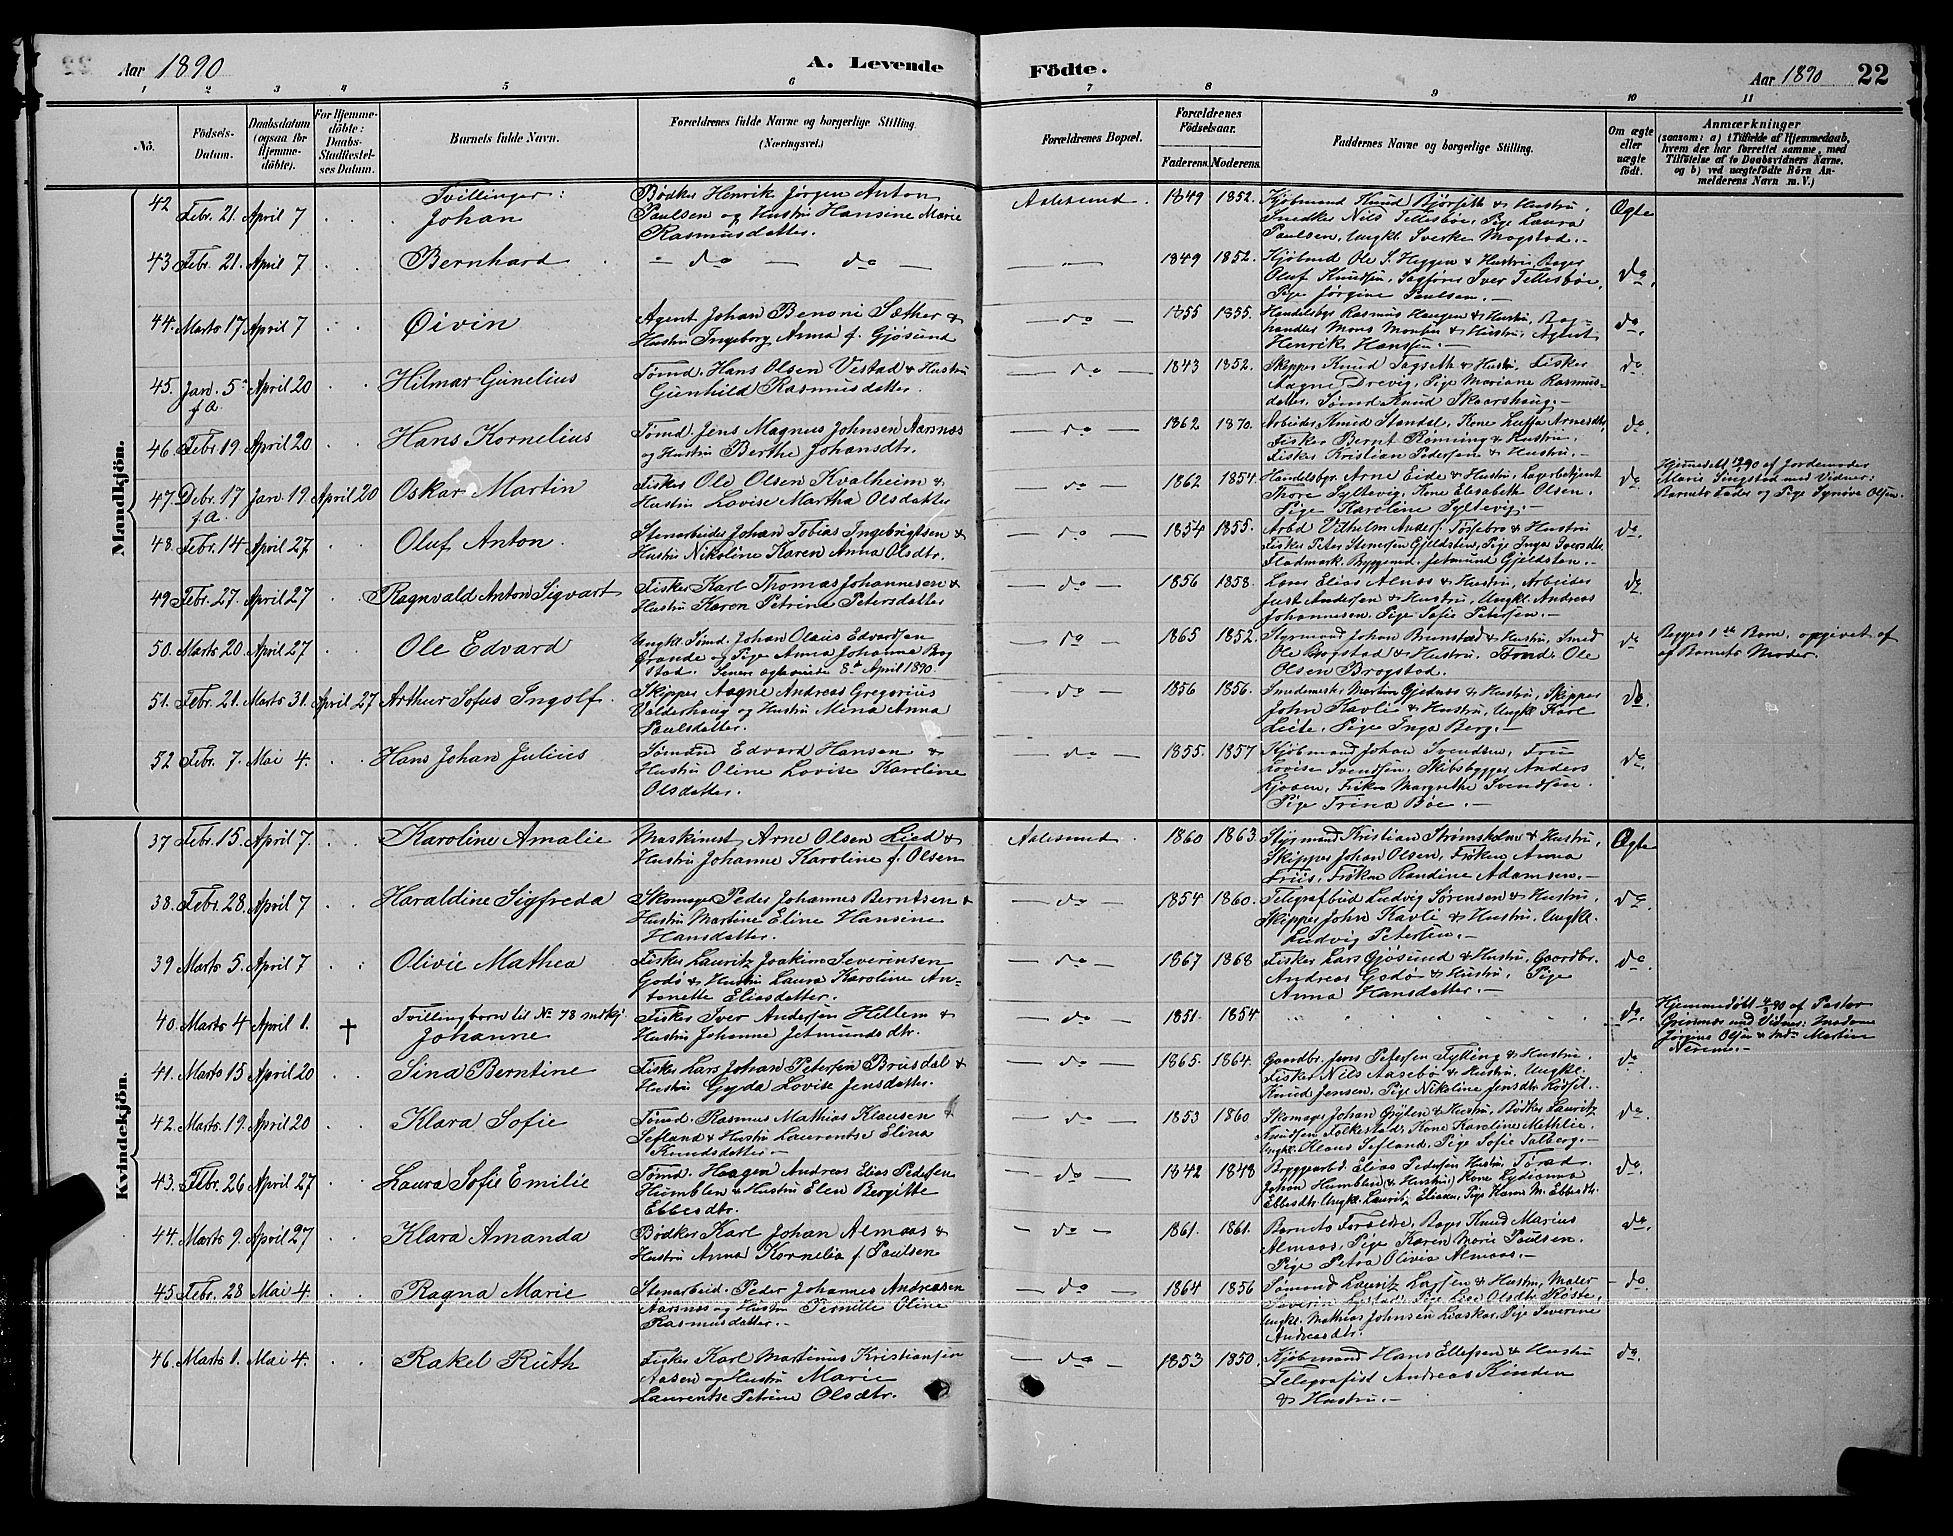 Aar 1890
A. Levende
Födte.
Aar 1890
22
1 2 3 4 5 6 7 8 9 10 11
No.
Födsels-Datum.
Daabsdatum (ogsaa for Hjemmedöbte).
For Hjemmedöbte: Daabs-Stadfæstelses Datum.
Barnets fulde Navn.
Forældrenes fulde Navne og borgerlige Stilling.
(Næringsvei.)
Forældrenes Bopæl.
Forældrenes Födselsaar.
Faderens. Moderens.
Faddernes Navne og borgerlige Stilling.
Om ægte eller uægte födt.
Anmærkninger
(saasom: a) i Tilfælde af Hjemmedaab, hvem der har forrettet samme, med Tilföielse af to Daabsvidners Navne. og b) ved uægtefödte Börn Anmelderens Navn m. V.)
Mandkjön.
42 Febr. 21. April 7 Tvillinger: Johan
Bødker Henrik Jørgen Anton
Paulsen og Hustru Hansine Marie
Rasmusdatter.
Aalesund. 1849 1852.
Kjøbmand Knud Bjørseth & Hustru,
Smedker Nils Tellesbøe, Pige Laura
Paulsen, Ungkl. Sverke Magstad.
Ægte
43 Febr. 21. April 7 Bernhard
- do - do -
1849 1852.
Kjøbmd Ole S. Heggen & Hustru, Bager
Oluf Knudsen, Sagfører Iver Tellesbøe,
Pige Jørgine Paulsen.
do.
44. Marts 17 April 7 Øivin
Agent Johan Benoni Sæther &
Hustru Ingeborg Anna f. Gjøsund
do 1855 1855.
Handelsbgr Rasmus Haugen & Hustru, Boghandler Mons Monsen & Hustru, Agent
Henrik Hanssen.
do
45. Jan. 5 f.a. April 20 Hilmar Gunelius
Tømd. Hans Olsen Vestad & Hustru
Gunhild Rasmusdatter.
do 1843 1852.
Skipper Knud Fagseth & Hustru, Fisker
Aagne Drevig, Pige Mariane Rasmusdatter, Tømd Knud Skaarshaug.
do
46 Febr. 19. April 20 Hans Kornelius
Tømd Jens Magnus Johnsen Aarsnæs
og Hustru Berthe Johansdtr.
do 1862 1870.
Arbeider Knud Standal, Kone Lufsa Arnesdtr,
Fisker Bernt Rønning & Hustru.
Fisker Kristian Pedersen & Hustru.
do.
47. Debr. 17 f.a. Jan. 19. April 20 Oskar Martin
Fisker Ole Olsen Kvalheim &
Hustru Lovise Martha Olsdatter
do 1862 1854.
Handelsbgr. Arne Eide & Hustru, Lagerbetjent
Thore Syltevig, Kone Elisabeth Olsen.
Pige Karoline Syltevig.
do
Hjemmedøbt 19/1 90 af Jordemoder
Marie Singstad med Vidner:
Barnets Fader og Pige Synøve Olsen.
48. Febr. 14 April 27 Oluf Anton.
Stenarbeider Johan Tobias Ingebrigtsen &
Hustru Nikoline Karen Anna Olsdtr.
do 1854 1855.
Arbd Vilhelm Anders. Torsebro & Hustru
Fisker Peter Stenersen Gjeldsten, Pige Inga Iversdtr.
Fladmark. Byggemd. Jetmund Gjeldsten.
do.
49 Febr. 27. April 27. Ragnvald Anton Sigvart
Fisker Karl Thomas Johannesen &
Hustru Karen Petrina Petersdatter
do 1856 1858.
Lods Elias Alnæs & Hustru, Arbeider
Just Andersen & Hustru, Ungkl. Andreas
Johannesen, Pige Sofie Petersen.
do
50. Marts 20 April 27 Ole Edvard
Ungkl. Tømd. Johan Olaus Edvardsen
Grande og Pige Anna Johanna Brogstad. Senere ægteviede 8de April 1890.
do 1865 1852.
Styrmand Johan Brunstad & Hustru, Smed
Ole Brogstad & Hustru, Tømd. Ole
Olsen Brogstad.
do
Begges 1ste Barn, opgivet af
af Barnets Moder.
51. Febr. 21. Marts 31. April 27 Arthur Sofus Ingolf.
Skipper Aagne Andreas Gregorius
Valderhaug og Hustru Mina Anna
Paulsdatter.
do 1856 1856.
Smedemest. Martin Gjednæs & Hustru, Skipper
John Kavli & Hustru, Ungkl. Karl
Leite, Pige Inga Berg.
do.
52 Febr. 7. Mai 4. Hans Johan Julius
Tømand Edvard Hansen &
Hustru Oline Lovise Karoline
Olsdatter.
do 1855. 1857
Kjøbmand Johan Svendsen, Frue
Lovise Svendsen, Skibsbygger Anders
Ljøen, Frøken Margrethe Svendsen.
Pige Trina Bøe.
do.
Kvindekjön.
37 Febr. 15. April 7. Karoline Amalie
Maskinist Arne Olsen Liad &
Hustru Johanne Karoline f. Olsen
Aalesund. 1860 1863.
Styrmand Kristian Strømsholm & Hustru,
Skipper Johan Olsen, Frøken Anna
Friis, Frøken Randine Adamsen.
Ægte
38. Febr. 28. April 7 Haraldine Sigfreda
Skomager Peder Johannes Berntsen &
Hustru Martine Eline Hansine
Hansdatter.
do 1854 1860.
Telegrafbud Ludvig Sørensen & Hustru,
Skipper John Kavli & Hustru, Ungkl.
Ludvig Petersen.
do.
39 Marts 5. April 7 Olivie Mathea
Fisker Lauritz Joakim Severinsen
Godø & Hustru Laura Karoline Antonette Eliasdatter.
do 1867 1868
Fisker Lars Gjøsund & Hustru, Gaardbr.
Andreas Godø & Hustru, Pige
Anna Hansdatter.
do
40. Marts 4 April 1. † Tvillingbarn til No 78 mdkj
Johanne
Fisker Iver Andersen Hellem &
Hustru Johanne Jetmundsdtr.
do 1851. 1854
do.
Hjemmedøbt 4/3 90 af Pastor
Grimnæs med Vidner: Madame
Jørgine Olsen & Md. Martine
Nerem.
41. Marts 15 April 20 Sina Berntine
Fisker Lars Johan Petersen Brusdal &
Hustru Gyda Lovise Jensdatter.
do 1865. 1864.
Gaardbr. Jens Petersen Fylling & Hustru.
Fisker Nils Aasebø & Hustru, Ungkl.
Knud Jensen, Pige Nikoline Jensdtr
do
42. Marts. 19. April 20 Klara Sofie
Tømd. Rasmus Mathias Klausen
Sefland & Hustru Laurentse Elina
Knudsdatter.
do 1853 1860
Skomager Johan Grytten & Hustru, Bødker Lauritz
Knudsen Folkestad, Kone Karoline Methlie.
Ungkl. Klaus Sefland, Pige Sofie Solberg.
do.
43. Febr. 26 April 27 Laura Sofie Emilie
Tømd. Haagen Andreas Elias Pedersen
Humblen & Hustru Elen Bergitte
Ebbesdtr.
do 1842 1848
Bryggearbd. Elias Pedersen Hustru
Johan Humblen (& Hustru) Kone Lydianna
Ebbesdtr. Ungkl. Lauritz Eliasen, Pige Hanna M. Ebbesdtr.
do.
44. Marts 9. April 27 Klara Amanda
Bødker Karl Johan Almaas &
Hustru Anna Kornelia f. Paulsen
do 1861. 1861.
Barnets Forældre, Bager Knud Marius
Almaas, Pige Karen Marie Paulsen.
Pige Petra Olivia Almaas.
do.
45. Febr. 28 Mai 4. Ragna Marie
Stenarbeid. Peder Johannes Andreasen
Aarsnæs og Hustru Pernille Oline
Rasmusdatter.
do 1864 1856
Tømand Lauritz Larsen & Hustru, Maler
Severin Lystad, Pige Lise Olsdtr Røste,
Ungkl. Mathias Johnsen Liaskar, Pige Severine
Andreasdtr.
do.
46. Marts 1. Mai 4. Rakel Ruth
Fisker Karl Martinus Kristiansen
Aasen og Hustru Marie
Laurentse Petrine Olsdtr.
do 1853 1850.
Kjøbmand Hans Ellefsen & Hustru
Telegrafist Andreas Kinden
& Hustru.
do.